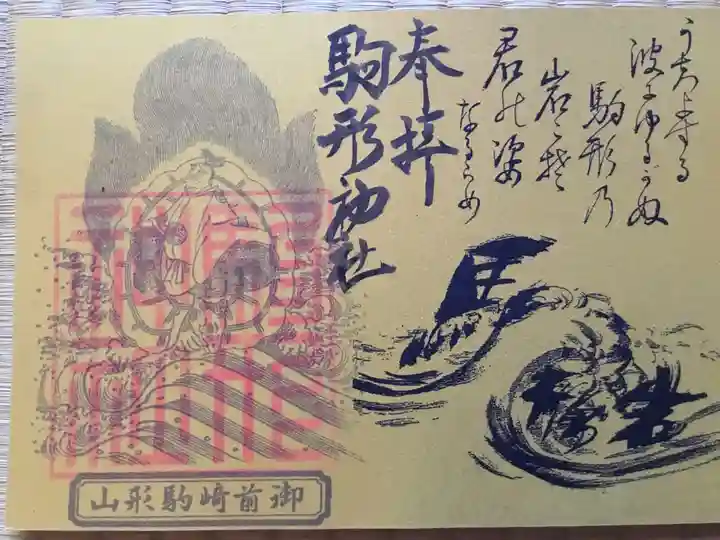 うちよする
波にゆるがぬ
駒形乃
岩こそ
君の姿
なるらめ
奉拝
駒形神社
馬
御前崎駒形山